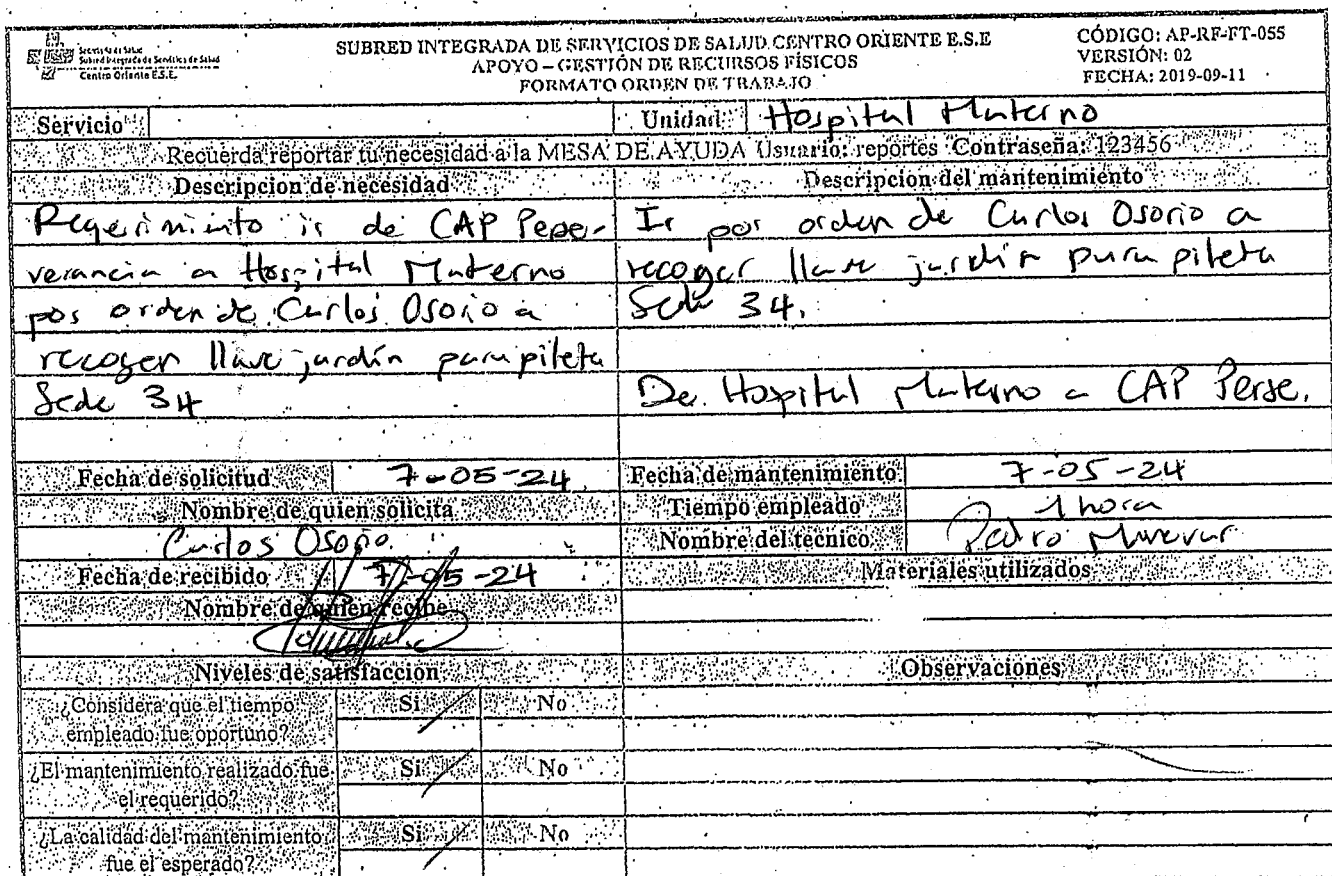 Secretaría de Salud
Subred Integrada de Servicios de Salud
Centro Oriente E.S.E.
SUBRED INTEGRADA DE SERVICIOS DE SALUD CENTRO ORIENTE E.S.E
APOYO – GESTIÓN DE RECURSOS FÍSICOS
FORMATO ORDEN DE TRABAJO
CÓDIGO: AP-RF-FT-055
VERSIÓN: 02
FECHA: 2019-09-11
Servicio
Unidad Hospital Materno
Recuerda reportar tu necesidad a la MESA DE AYUDA Usuario: reportes Contraseña: 123456
Descripcion de necesidad
Requerimiento ir de CAP Perse-
verancia a Hospital Materno
por orden de Carlos Osorio a
recoger llave jardín para pileta
Sede 34
Descripcion del mantenimiento
Ir por orden de Carlos Osorio a
recoger llave jardín para pileta
Sede 34.
De Hospital Materno a CAP Perse.
Fecha de solicitud 7-05-24
Fecha de mantenimiento 7-05-24
Nombre de quien solicita
Carlos Osorio
Tiempo empleado 1 hora
Nombre del técnico Pedro
Fecha de recibido 7-05-24
Materiales utilizados
Nombre de quien recibe
Niveles de satisfacción
Observaciones
¿Considera que el tiempo
empleado fue oportuno?
Si No
¿El mantenimiento realizado fue
el requerido?
Si No
¿La calidad del mantenimiento
fue el esperado?
Si No